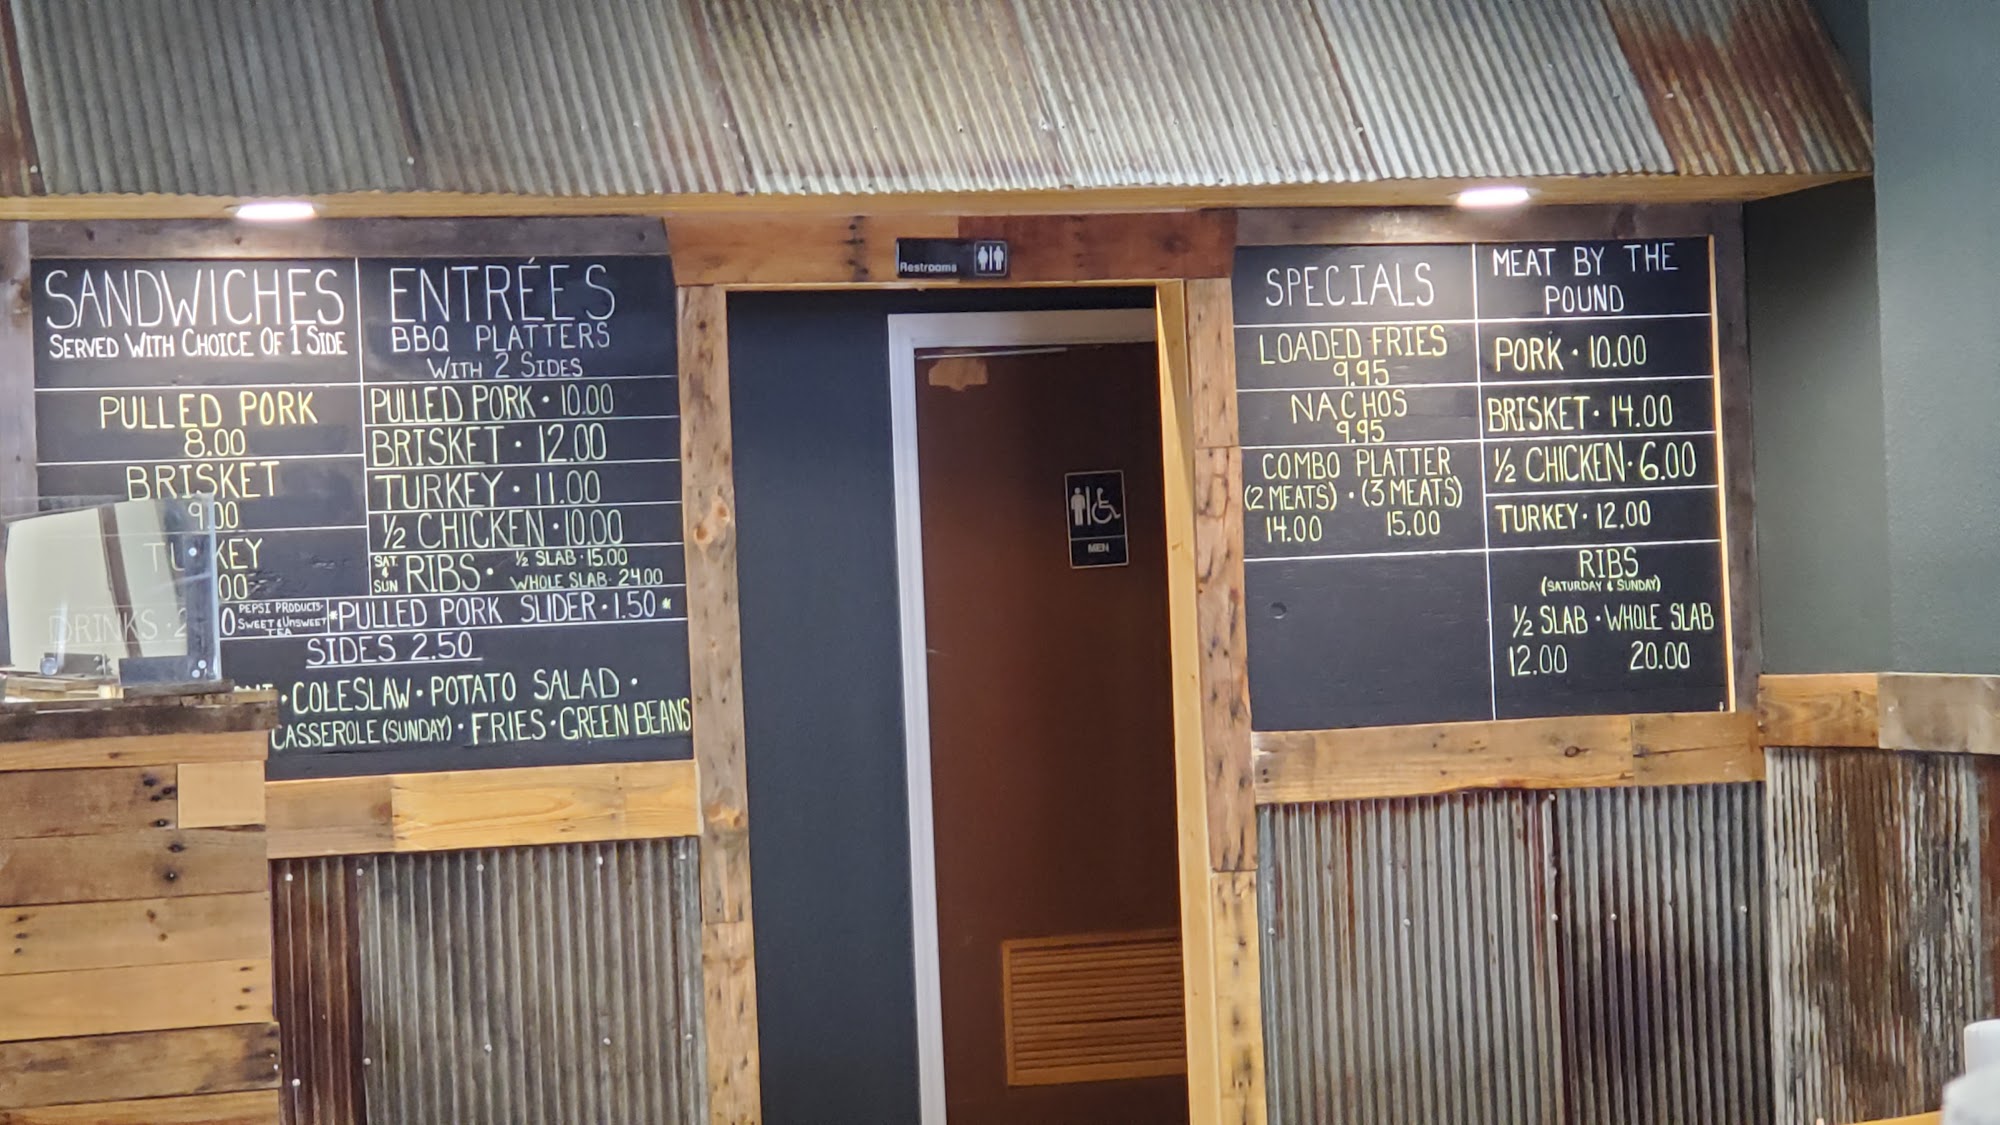 SANDWICHES
SERVED WITH CHOICE OF 1 SIDE
PULLED PORK
8.00
BRISKET
9.00
TURKEY
DRINKS
PEPSI PRODUCTS
SWEET & UNSWEET
TEA
ENTRÉES
BBQ PLATTERS
WITH 2 SIDES
PULLED PORK · 10.00
BRISKET · 12.00
TURKEY · 11.00
½ CHICKEN · 10.00
SAT. & SUN RIBS · ½ SLAB · 15.00
WHOLE SLAB · 24.00
*PULLED PORK SLIDER · 1.50*
SIDES 2.50
· COLESLAW · POTATO SALAD ·
CASSEROLE (SUNDAY) · FRIES · GREEN BEANS
Restrooms
MEN
SPECIALS
LOADED FRIES
9.95
NACHOS
9.95
COMBO PLATTER
(2 MEATS) · (3 MEATS)
14.00 15.00
MEAT BY THE
POUND
PORK · 10.00
BRISKET · 14.00
½ CHICKEN · 6.00
TURKEY · 12.00
RIBS
(SATURDAY & SUNDAY)
½ SLAB · WHOLE SLAB
12.00 20.00